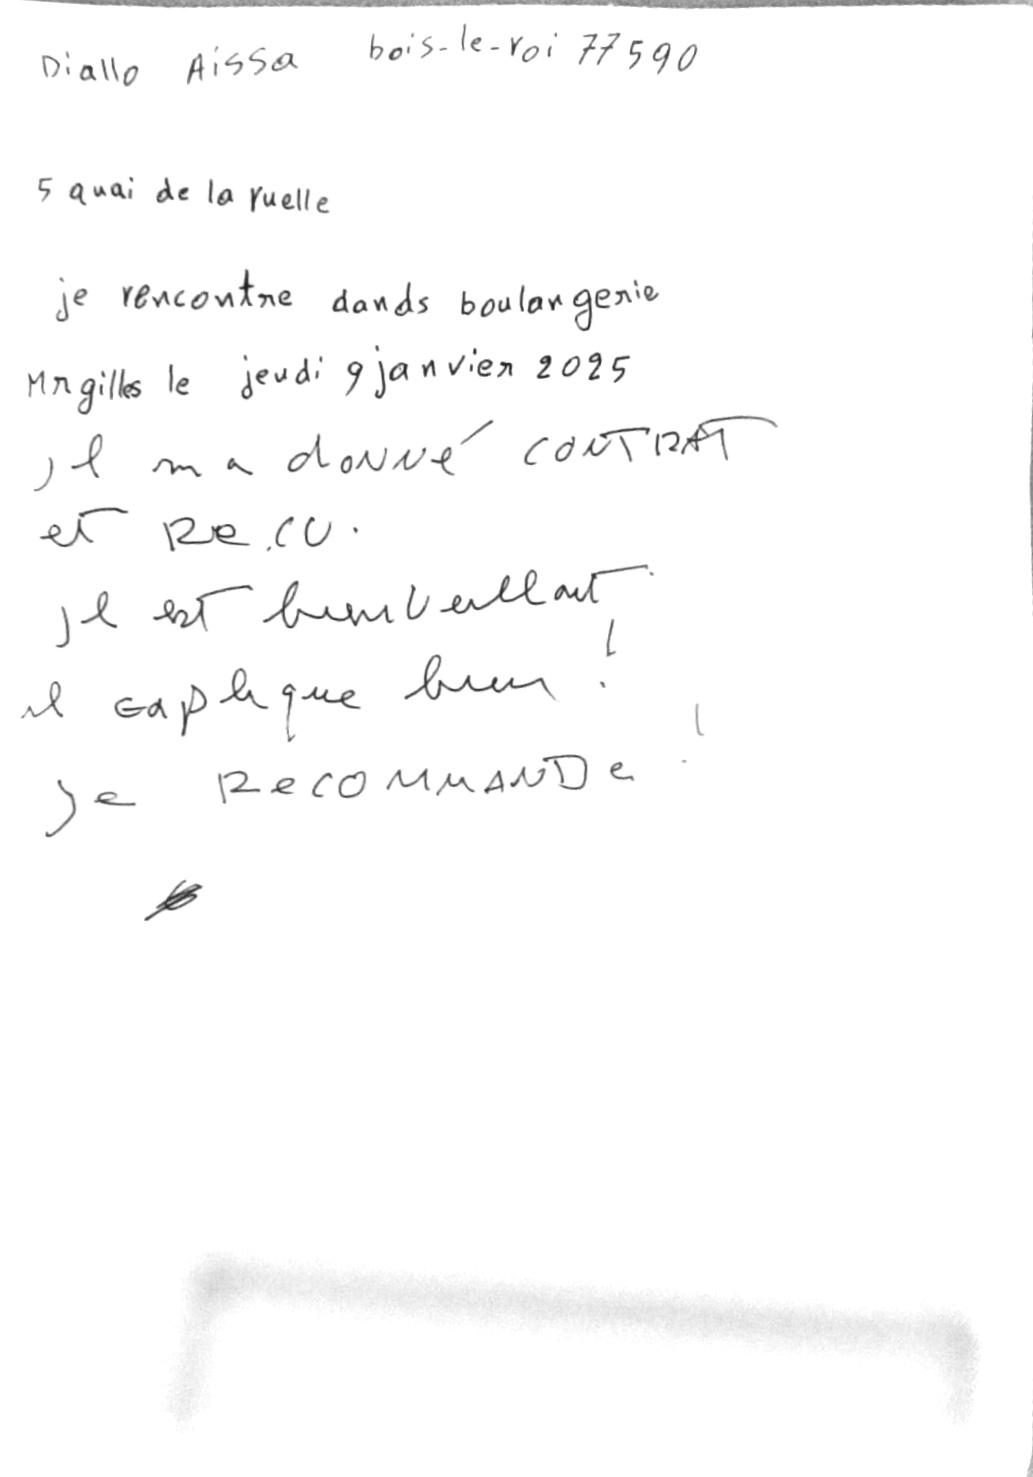 Diallo Aissa bois-le-roi 77590
5 quai de la ruelle
je rencontre dands boulangerie
Mr gilles le jeudi 9 janvier 2025
il m a donné CONTRAT
et Reçu.
il est bienveillant
il explique bien !
je RECOMMANDe !